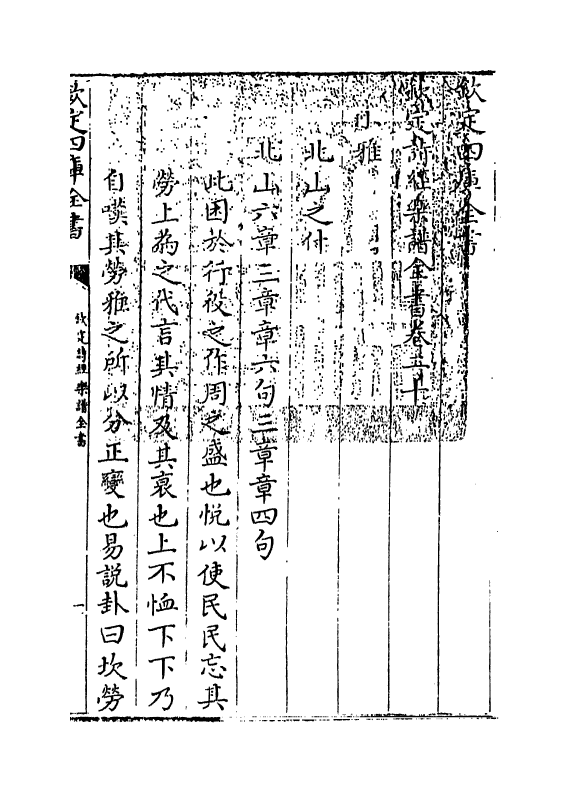 欽定四庫全書
欽定詩經樂譜全書卷五十
小雅
北山之什
北山六章三章章六句三章章四句
此困於行役之作周之盛也悅以使民民忘其
勞上為之代言其情及其衰也上不恤下下乃
自嘆其勞雅之所以分正變也易說卦曰坎勞
欽定四庫全書
欽定詩經樂譜全書
一